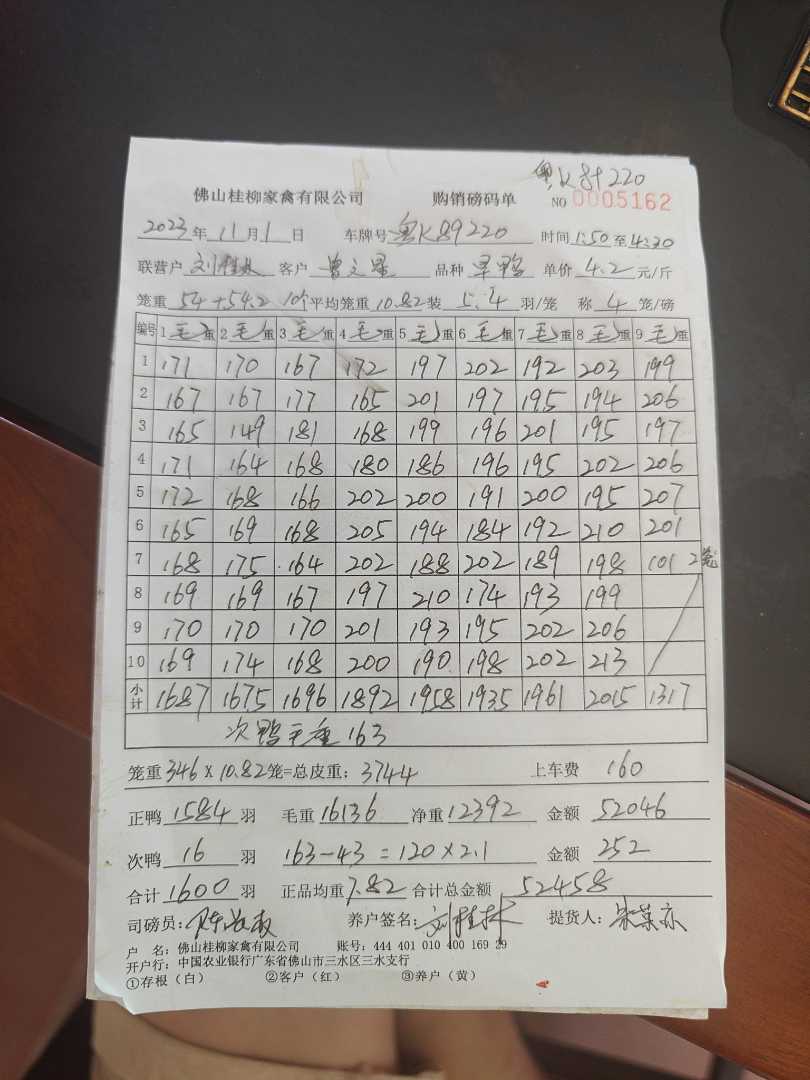 粤K89220
佛山桂柳家禽有限公司 购销磅码单 NO 0005162
2023年11月1日 车牌号 粤K89220 时间 1:50 至 4:30
联营户 刘桂林 客户 曾文星 品种 旱鸭 单价 4.2 元/斤
笼重 54+54.2 10个 平均笼重 10.82 装 5.4 羽/笼 称 4 笼/磅
编号 1毛重 2毛重 3毛重 4毛重 5毛重 6毛重 7毛重 8毛重 9毛重
1 171 170 167 172 197 202 192 203 199
2 167 167 177 165 201 197 195 194 206
3 165 149 181 168 199 196 201 195 197
4 171 164 168 180 186 196 195 202 206
5 172 168 166 202 200 191 200 195 207
6 165 169 168 205 194 184 192 210 201
7 168 175 164 202 188 202 189 198 101 2笼
8 169 169 167 197 210 174 193 199
9 170 170 170 201 193 195 202 206
10 169 174 168 200 190 198 202 213
小计 1687 1675 1696 1892 1958 1935 1961 2015 1317
次鸭毛重 163
笼重 346 X 10.82 笼=总皮重: 3744 上车费 160
正鸭 1584 羽 毛重 16136 净重 12392 金额 52046
次鸭 16 羽 163-43=120×2.1 金额 252
合计 1600 羽 正品均重 7.82 合计总金额 52458
司磅员: 养户签名: 刘桂林 提货人:
户 名: 佛山桂柳家禽有限公司 账号: 444 401 010 400 169 29
开户行: 中国农业银行广东省佛山市三水区三水支行
①存根(白) ②客户(红) ③养户(黄)